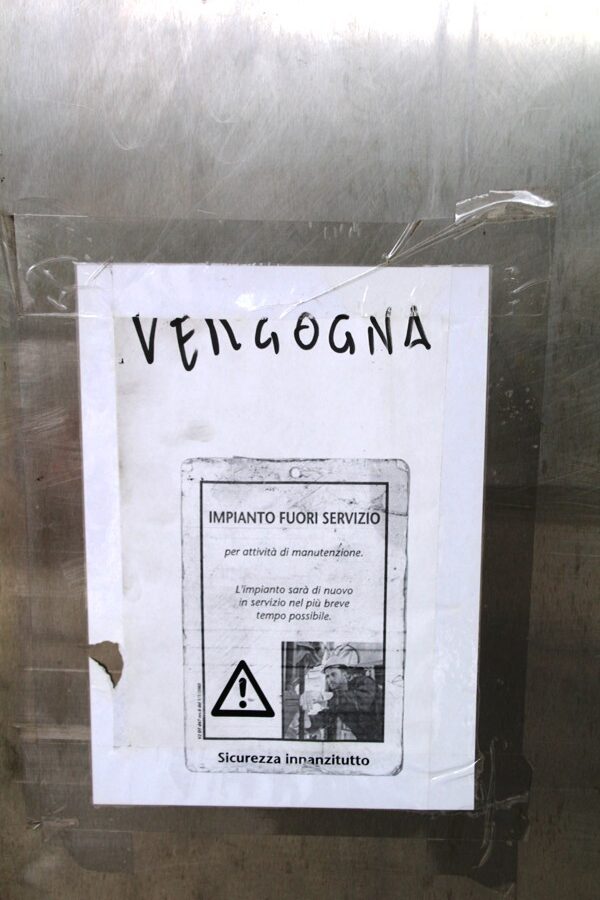 VERGOGNA
IMPIANTO FUORI SERVIZIO
per attività di manutenzione.
L'impianto sarà di nuovo
in servizio nel più breve
tempo possibile.
Sicurezza innanzitutto